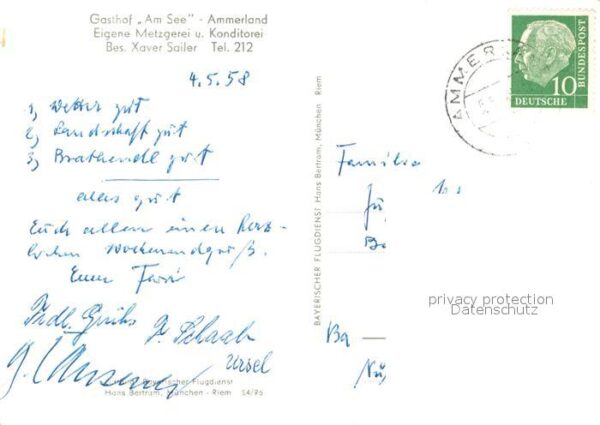 Gasthof „Am See" - Ammerland
Eigene Metzgerei u. Konditorei
Bes. Xaver Sailer Tel. 212
4.5.58
1, Wetter gut
2, Landschaft gut
3, Brathendl gut
alles gut
Euch allen einen herz-
lichen Wochenendgruß.
Euer
Frdl.
Ursel
Bayerischer Flugdienst
Hans Bertram, München - Riem 54/96
BAYERISCHER FLUGDIENST Hans Bertram, München, Riem
AMMER
10
DEUTSCHE
BUNDESPOST
Familie
privacy protection
Datenschutz